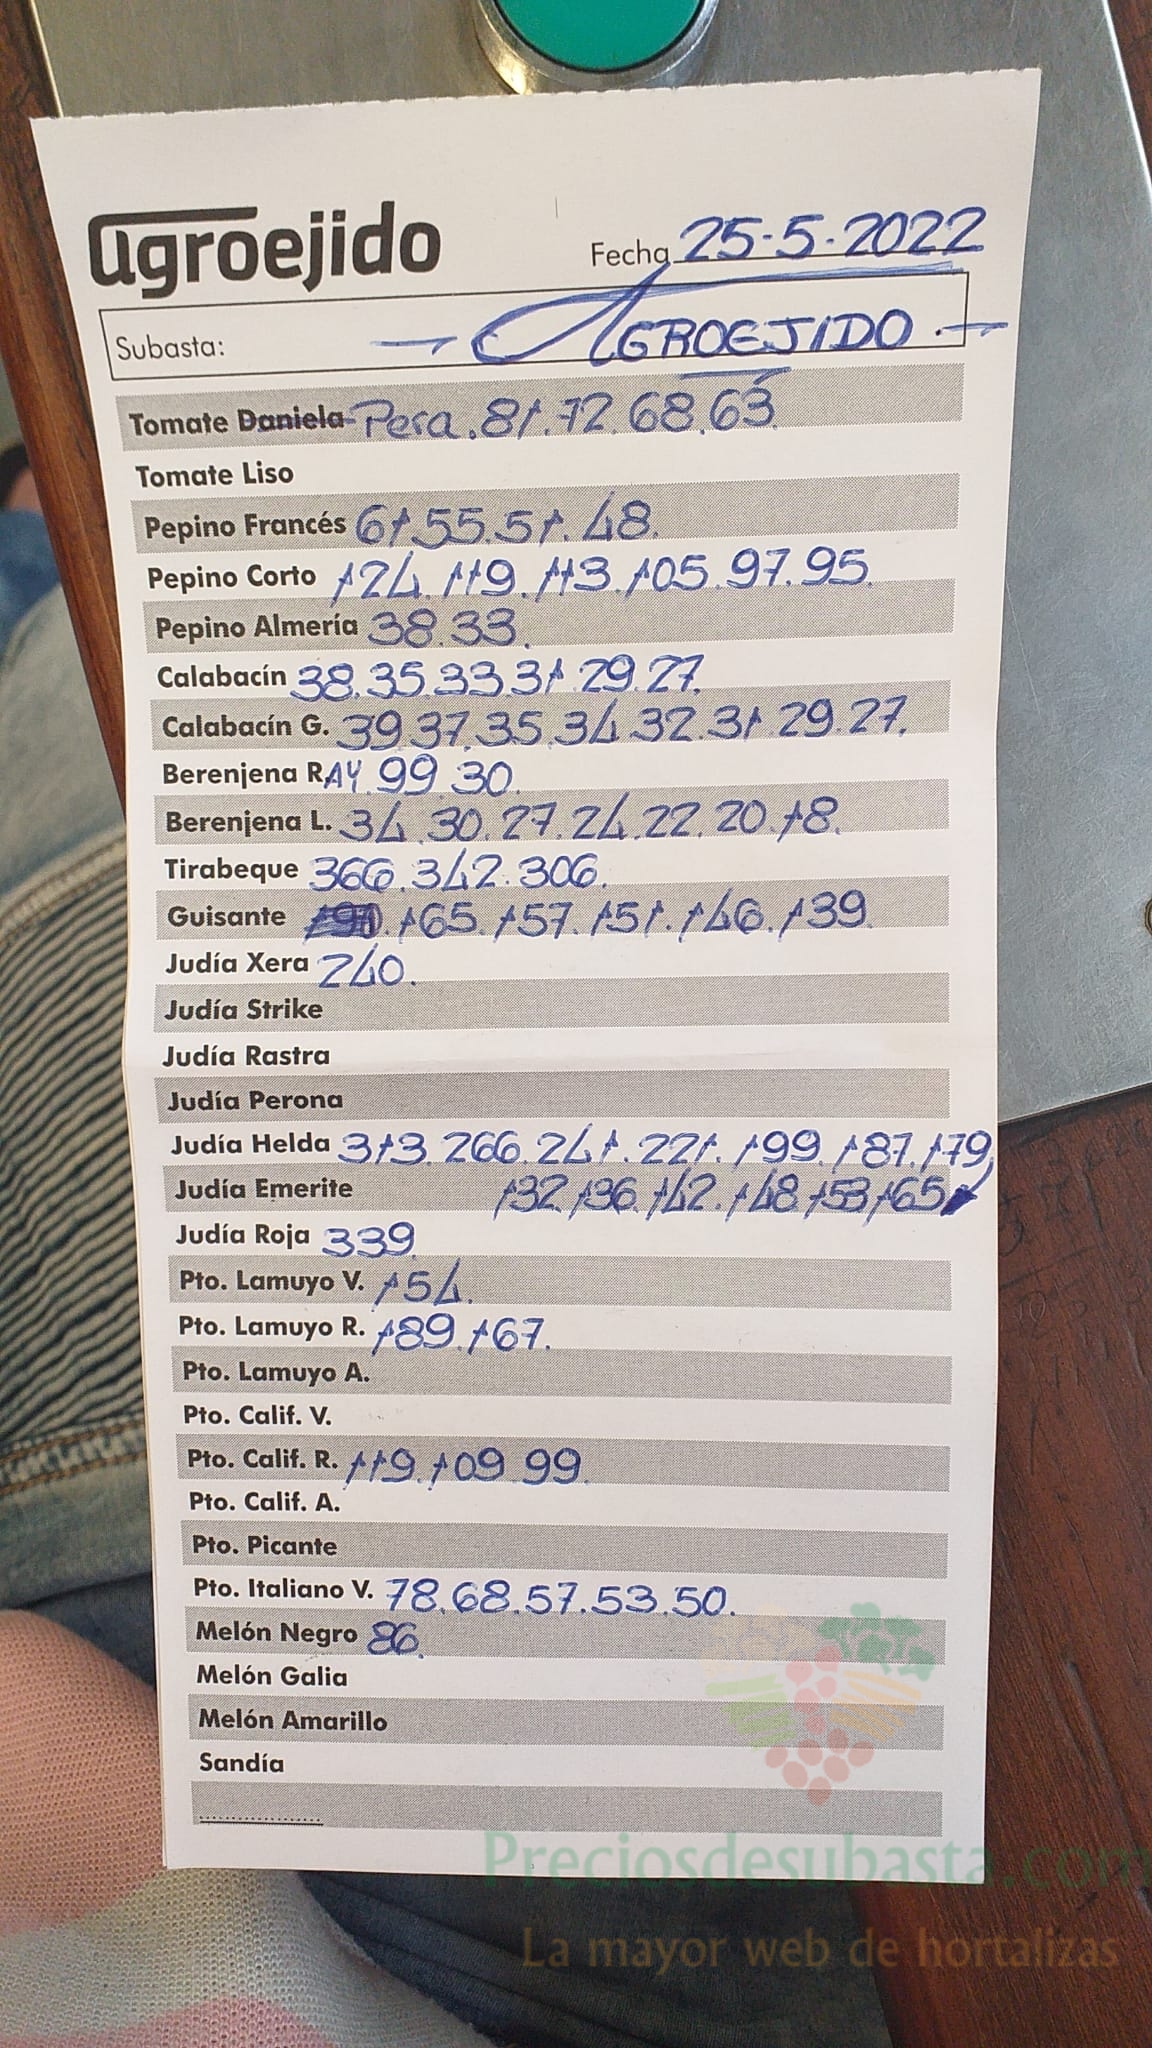 agroejido
Fecha 25-5-2022
Subasta: AGROEJIDO.
Tomate Daniela Pera. 81. 72. 68. 63.
Tomate Liso
Pepino Francés 61. 55. 51. 48.
Pepino Corto 124. 119. 113. 105. 97. 95.
Pepino Almería 38. 33.
Calabacín 38. 35. 33. 31. 29. 27.
Calabacín G. 39. 37. 35. 34. 32. 31. 29. 27.
Berenjena RAY. 99. 30.
Berenjena L. 34. 30. 27. 24. 22. 20. 18.
Tirabeque 366. 342. 306.
Guisante 165. 157. 151. 146. 139.
Judía Xera 240.
Judía Strike
Judía Rastra
Judía Perona
Judía Helda 313. 266. 241. 221. 199. 187. 179
Judía Emerite 132. 136. 142. 148. 153. 165
Judía Roja 339.
Pto. Lamuyo V. 154.
Pto. Lamuyo R. 189. 167.
Pto. Lamuyo A.
Pto. Calif. V.
Pto. Calif. R. 119. 109. 99.
Pto. Calif. A.
Pto. Picante
Pto. Italiano V. 78. 68. 57. 53. 50.
Melón Negro 86.
Melón Galia
Melón Amarillo
Sandía
Preciosdesubasta.com
La mayor web de hortalizas